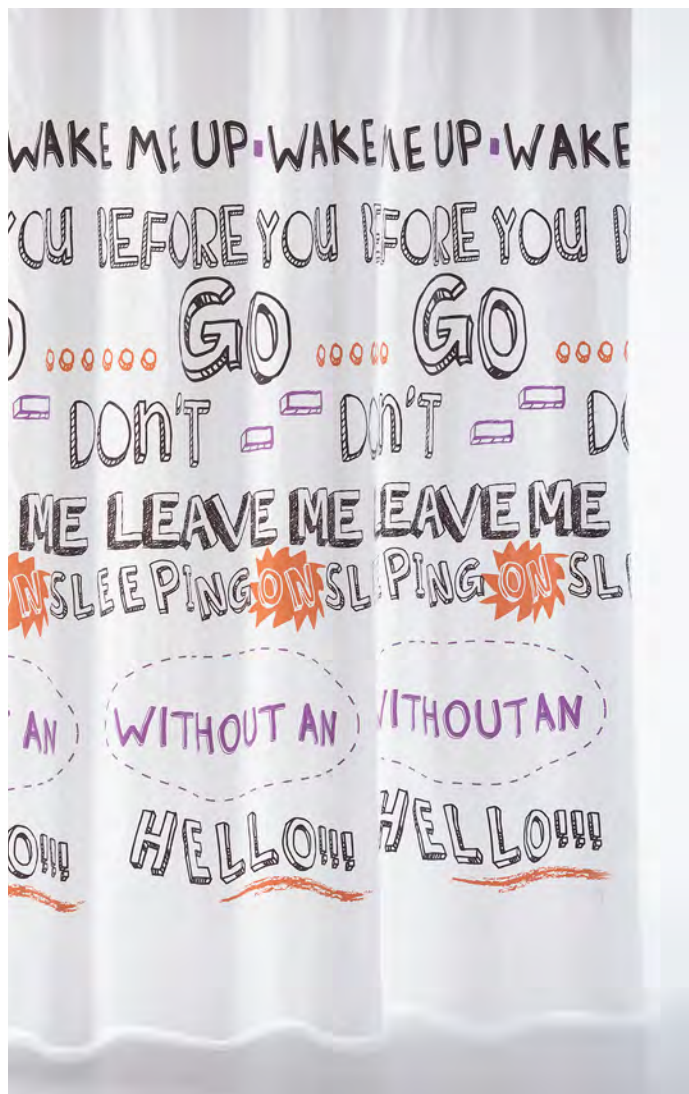 WAKE ME UP WAKE ME UP WAKE
YOU BEFORE YOU BEFORE YOU B
GO GO
DON'T DON'T DO
ME LEAVE ME LEAVE ME
ON SLEEPING ON SL PING ON SLE
WITHOUT AN WITHOUT AN
HELLO!!! HELLO!!!